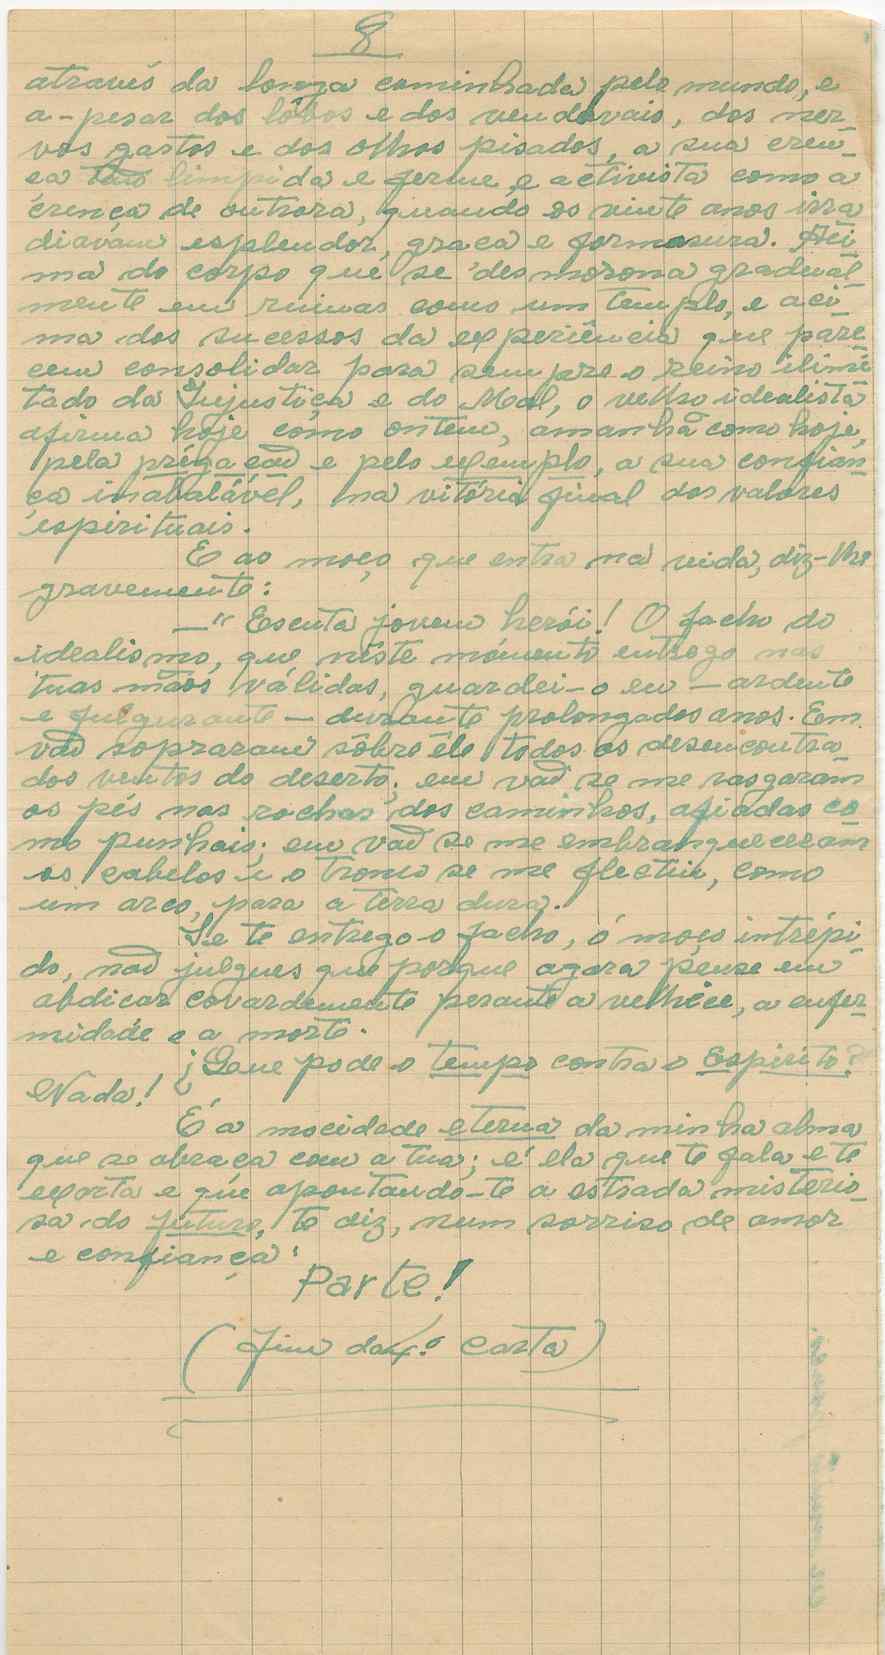 8
através da longa caminhada pelo mundo, e
a-pesar dos lôbos e dos vendavais, dos ner-
vos gastos e dos olhos pisados, a sua cren-
ça tão limpida e ferme e activista como a
crença de outrora, quando os vinte anos irra
diavam esplendor, graça e formosura. Aci
ma do corpo que se desmorona gradual-
mente em ruinas como um templo, e aci
ma dos sucessos da experiência que pare-
cem consolidar para sempre o reino ilimi-
tado da Injustiça e do Mal, o velho idealista
afirma hoje como ontem, amanhã como hoje,
pela prégação e pelo exemplo, a sua confian-
ça inabalável, na vitória final dos valores
espirituais.
E ao moço que entra na vida, diz-lhe
gravemente:
—" Escuta jovem herói! O facho do
idealismo, que nêste momento entrego nas
tuas mãos válidas, guardei-o eu — ardente
e fulgurante — durante prolongados anos. Em
vão sopraram sôbre êle todos os desencontra
dos ventos do deserto; em vão se me rasgaram
os pés nas rochas dos caminhos, afiadas co
mo punhais; em vão se me embranqueceram
os cabelos e o tronco se me flectiu, como
um arco, para a terra dura.
Se te entrego o facho, ó moço intrépi-
do, não julgues que porque agora pense em
abdicar covardemente perante a velhice, a enfer-
midade e a morte.
¿Que pode o tempo contra o Espirito?
Nada!
É a mocidade eterna da minha alma
que se abraça com a tua; é ela que te fala e te
exorta e que apontando-te a estrada misterio-
sa do futuro, te diz, num sorriso de amor
e confiança:
Parte!
(Fim da 4.ª carta)